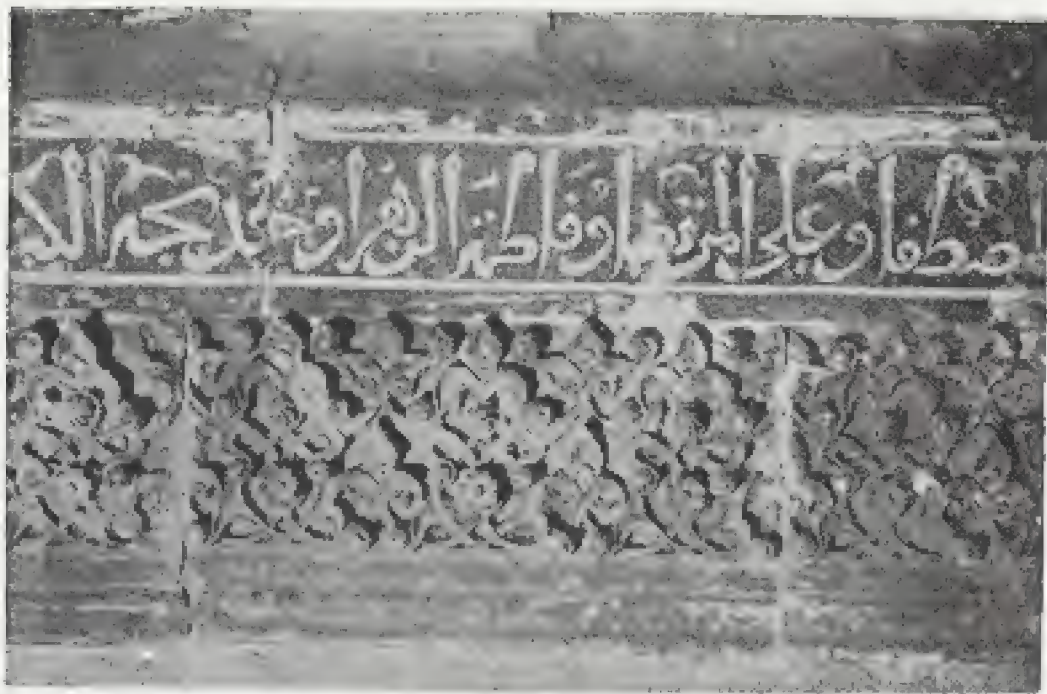 مصطفا و علي المرتضا و فاطمة الزهرا و خديجة الك